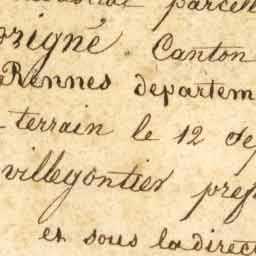 parcell
origné Canton
Rennes départem
terrain le 12 sep
villegontier pref
et sous la direct